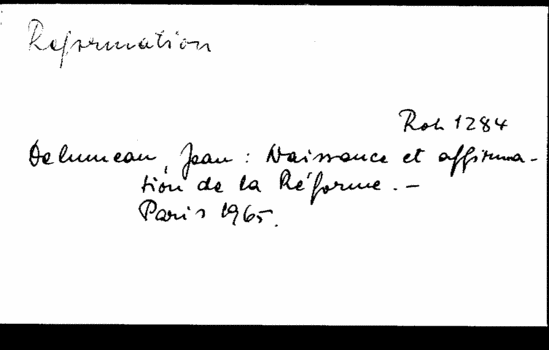 Reformation
Roh 1284
Delumeau, Jean: Naissance et affirma-
tion de la Réforme. -
Paris 1965.